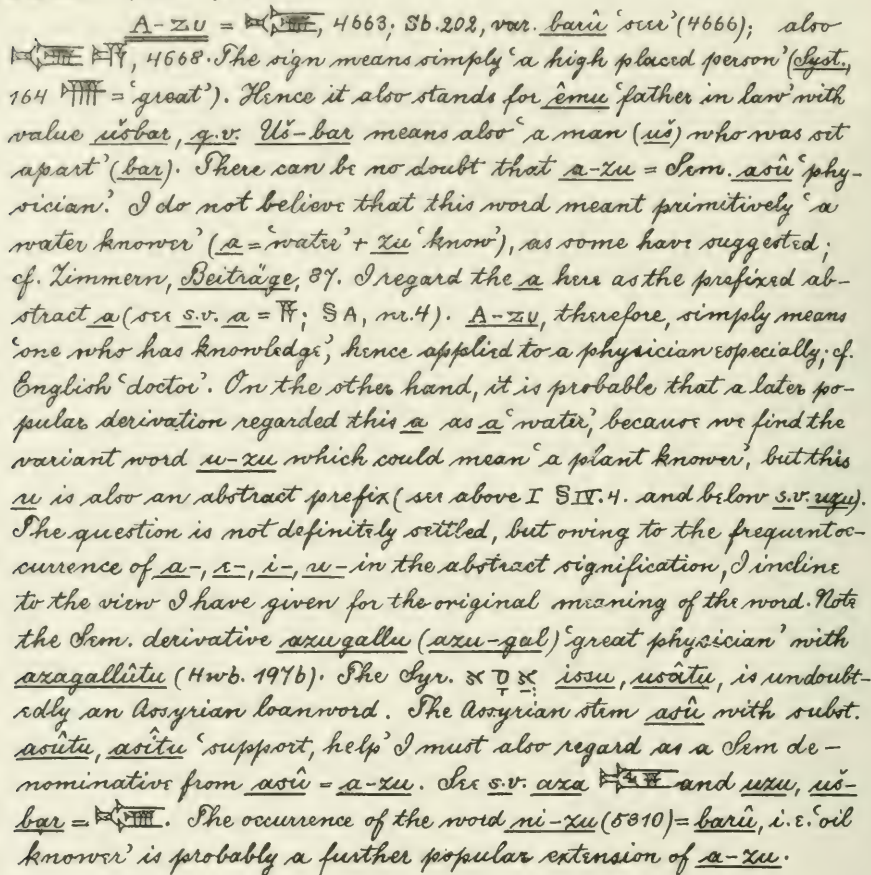 A-zu = 𒀀𒍪, 4663; Sb. 202, var. barû ‘seer’ (4666); also
, 4668. The sign means simply ‘a high placed person’ (Syst.,
164 = ‘great’). Hence it also stands for êmu ‘father in law’ with
value ušbar, q.v. Uš-bar means also ‘a man (uš) who was set
apart’ (bar). There can be no doubt that a-zu = Sem. asû ‘phy-
sician.’ I do not believe that this word meant primitively ‘a
water knower’ (a = ‘water’ + zu ‘know’), as some have suggested;
cf. Zimmern, Beiträge, 87. I regard the a here as the prefixed ab-
stract a (see s.v. a = 𒀀; §A, nr. 4). A-zu, therefore, simply means
‘one who has knowledge,’ hence applied to a physician especially; cf.
English ‘doctor’. On the other hand, it is probable that a later po-
pular derivation regarded this a as a ‘water,’ because we find the
variant word u-zu which could mean ‘a plant knower’, but this
u is also an abstract prefix (see above I §IV. 4. and below s.v. uzu).
The question is not definitely settled, but owing to the frequent oc-
currence of a-, e-, i-, u- in the abstract signification, I incline
to the view I have given for the original meaning of the word. Note
the Sem. derivative azugallu (azu-gal) ‘great physician’ with
azagallûtu (Hwb. 197b). The Syr. issu, usâtu, is undoubt-
edly an Assyrian loanword. The Assyrian stem asû with subst.
asûtu, asîtu ‘support, help’ I must also regard as a Sem de-
nominative from asû = a-zu. See s.v. aza and uzu, uš-
bar = . The occurrence of the word ni-zu (5310) = barû, i.e. ‘oil
knower’ is probably a further popular extension of a-zu.